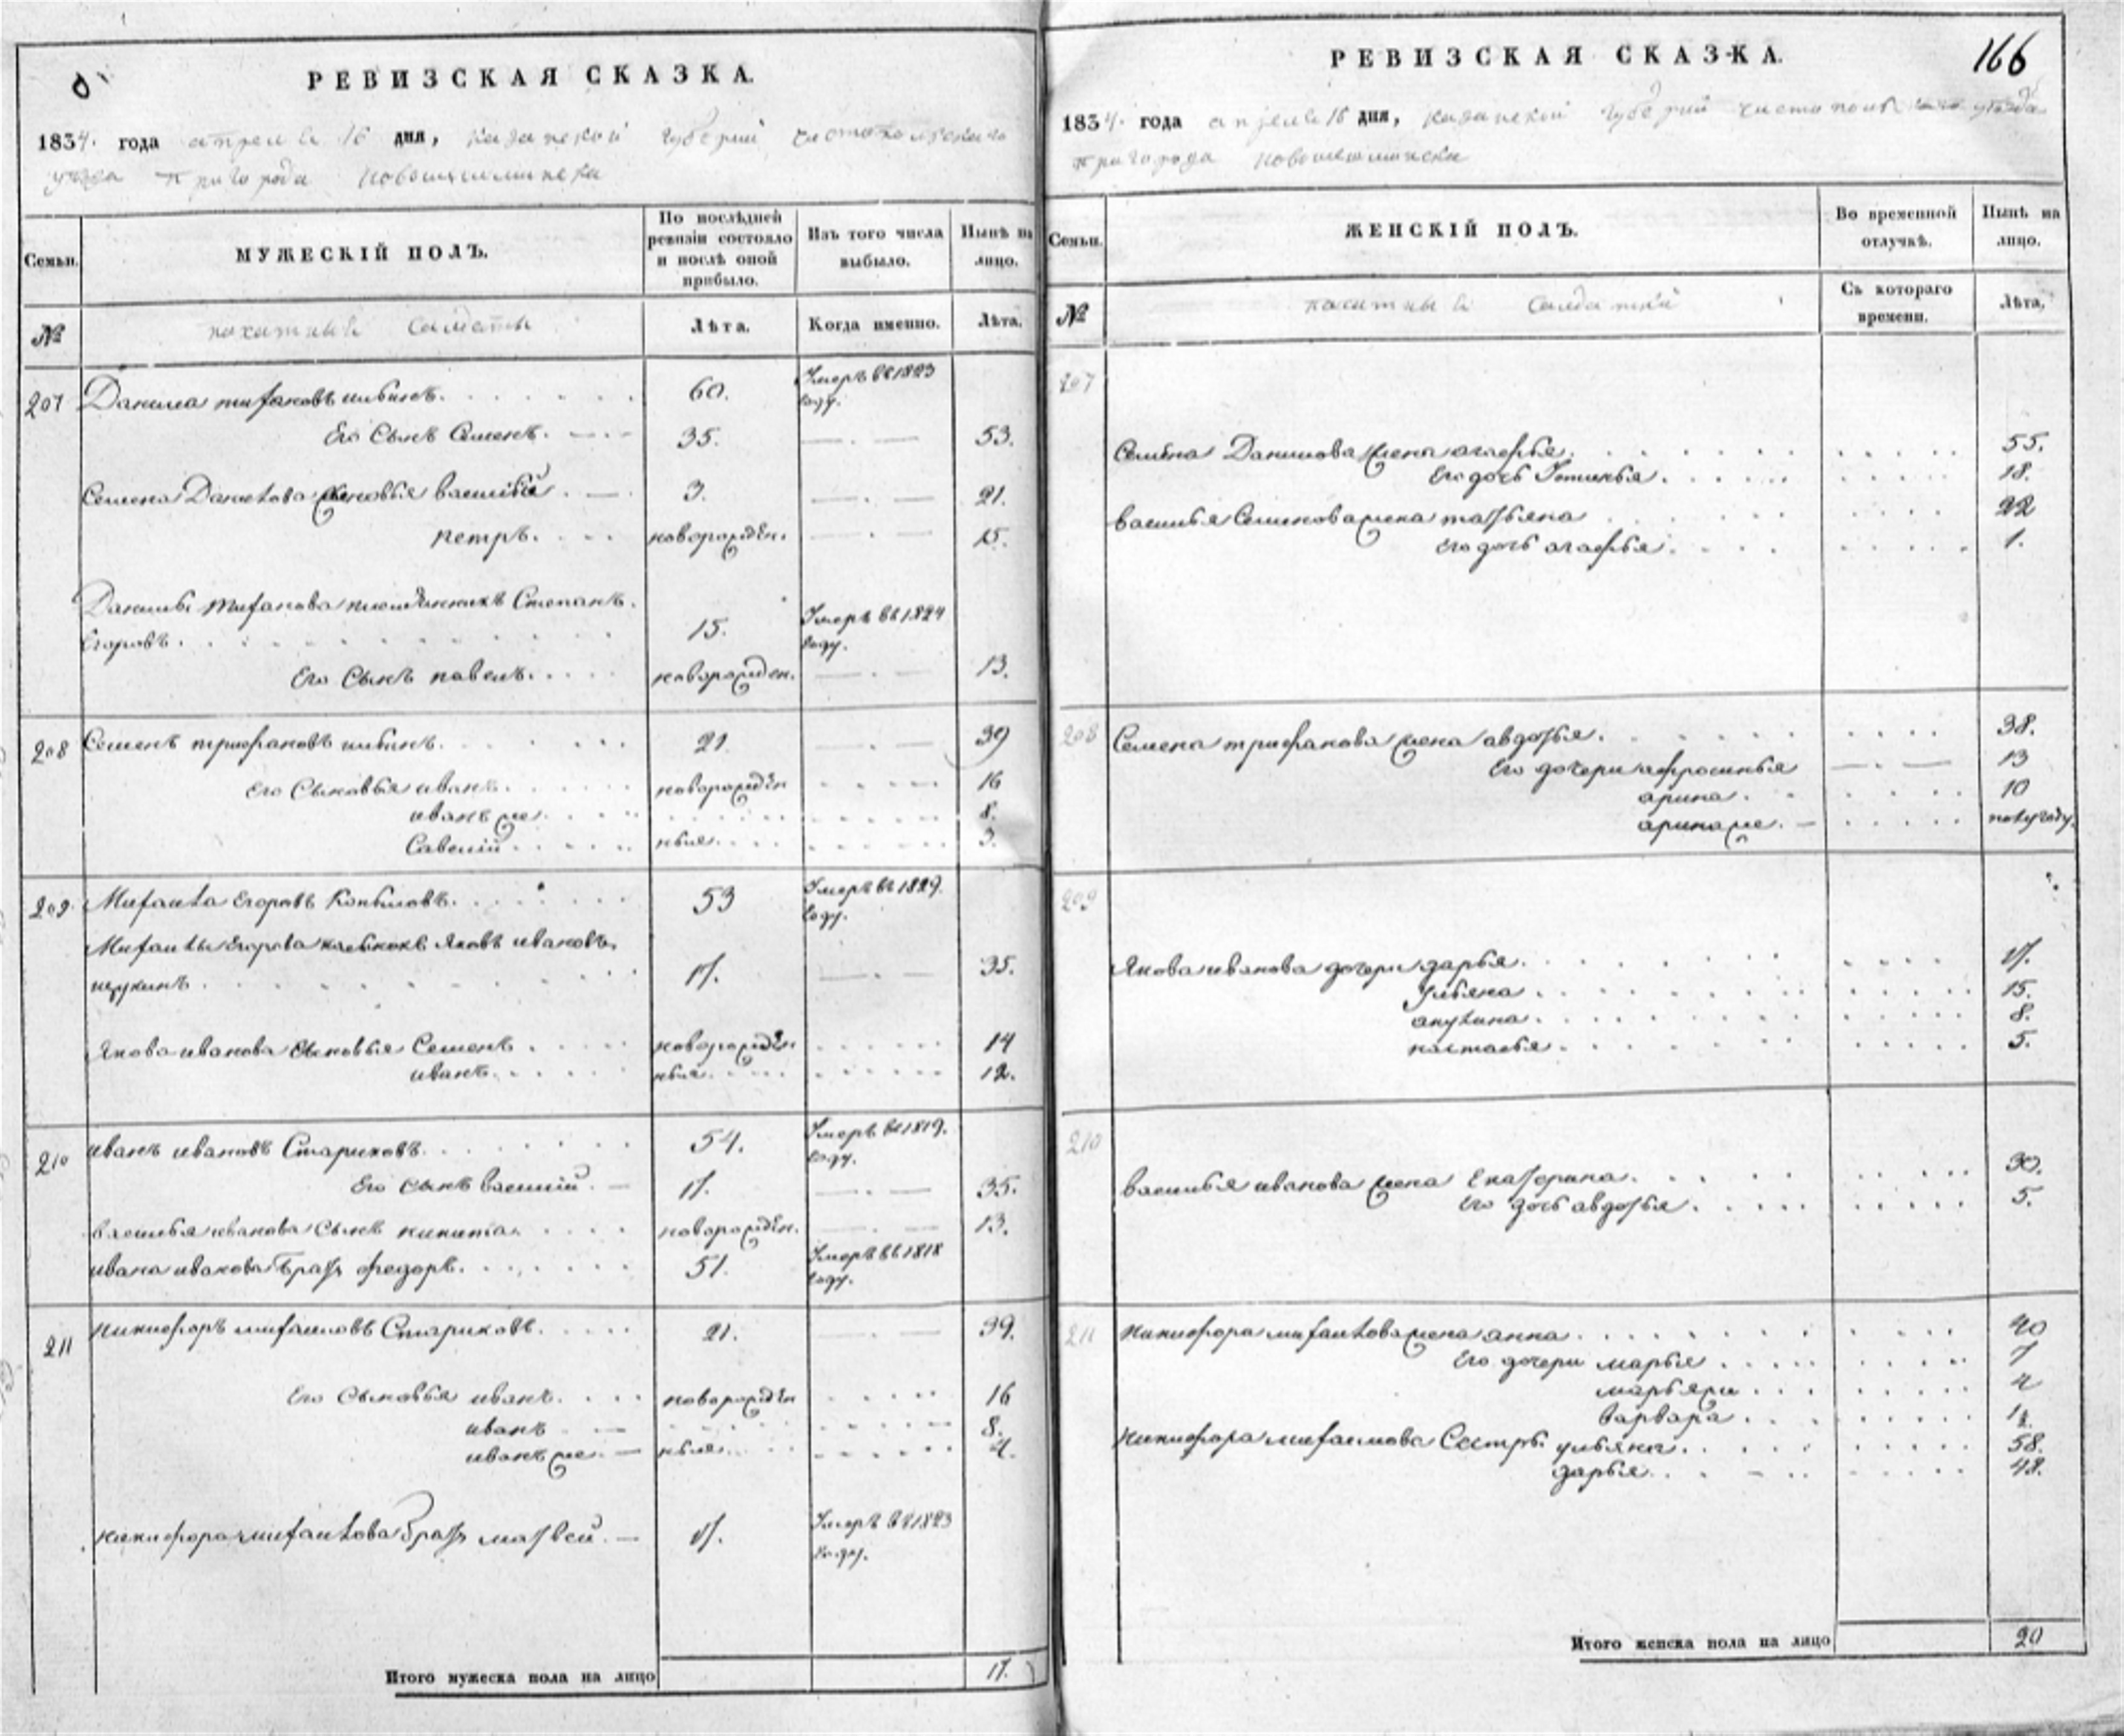 РЕВИЗСКАЯ СКАЗКА.
1834. года апреля 16 дня, казанской губернии чистопольскаго
уезда пригорода новошешминска
Семьи.
МУЖЕСКІЙ ПОЛЪ.
По послѣдней ревизіи состояло и послѣ оной прибыло.
Изъ того числа выбыло.
Нынѣ на лицо.
№
пахатныя солдаты
Лѣта.
Когда именно.
Лѣта.
207 Данила трифановъ 60. Умеръ въ 1823 году.
Его Сынъ Семенъ. 35. 53.
Семена Данилова Сыновья василий 3. 21.
петръ. новорожден. 15.
Данилы трифанова племянникъ Степанъ.
Егоровъ. 15. Умеръ въ 1824 году.
Его Сынъ павелъ. новорожден. 13.
208 Семенъ трифановъ 21. 39
Его Сыновья иванъ. новорожден 16
иванъ же. 8.
Савелій. ныя. 3.
209. Михаила Егоровъ Копыловъ. 53 Умеръ въ 1829. году.
Михаилы Егорова Яковъ ивановъ.
17. 35.
Якова иванова Сыновья Семенъ новорожден 14
иванъ. ныя. 12.
210 иванъ ивановъ Стариковъ. 54. Умеръ въ 1819. году.
Его Сынъ василий. 17. 35.
василья иванова Сынъ никита. новорожден. 13.
ивана иванова братъ федоръ. 51. Умеръ въ 1818 году.
211 никифоръ михаиловъ Стариковъ. 21. 39.
Его Сыновья иванъ. новорожден 16
иванъ 8.
иванъ же. ныя. 4.
никифора михаилова братъ матвей. 17. Умеръ въ 1823 году.
Итого мужеска пола на лицо 17.
РЕВИЗСКАЯ СКАЗКА.
166
1834. года апреля 16 дня, казанской губернии чистополь уезда
пригорода новошешминска
Семьи.
ЖЕНСКІЙ ПОЛЪ.
Во временной отлучкѣ.
Нынѣ на лицо.
№
пахатныя солдатки
Съ котораго времени.
Лѣта,
207
Семена Данилова жена агафья. 55.
Его дочь Устинья. 18.
василья Семенова жена татьяна 22
Его дочь агафья. 1.
208 Семена трифанова жена авдотья. 38.
Его дочери афросинья 13
арина. 10
арина же. полугоду.
209
Якова иванова дочери дарья. 17.
Ульяна. 15.
акулина. 8.
настасья. 5.
210
василья иванова жена Екатерина. 30.
Его дочь авдотья. 5.
211 никифора михаилова жена анна. 40
Его дочери марья 7
марья же 4
варвара. 1½.
никифора михаилова Сестры ульяна. 58.
дарья. 48.
Итого женска пола на лицо 20